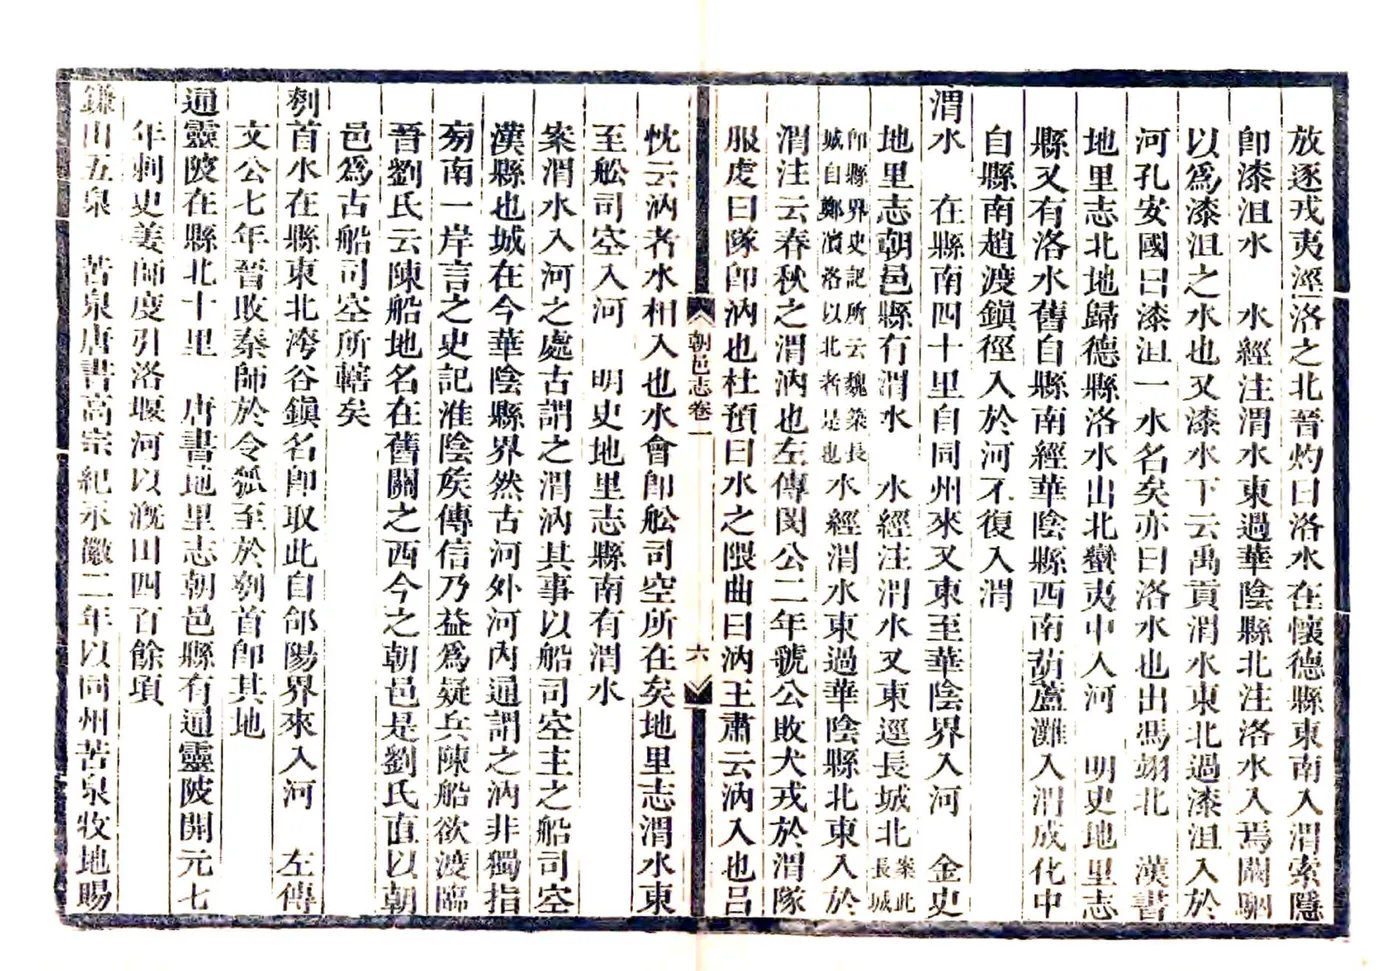 放逐戎夷涇洛之北晉灼曰洛水在懷德縣東南入渭索隱
卽漆沮水　水經注渭水東過華陰縣北注洛水入焉闞駰
以爲漆沮之水也又漆水下云禹貢渭水東北過漆沮入於
河孔安國曰漆沮一水名矣亦曰洛水也出馮翊北　漢書
地里志北地歸德縣洛水出北蠻夷中入河　明史地里志
縣又有洛水舊自縣南經華陰縣西南葫蘆灘入渭成化中
自縣南趙渡鎭徑入於河不復入渭
渭水　在縣南四十里自同州來又東至華陰界入河　金史
地里志朝邑縣有渭水　水經注渭水又東逕長城北案此長城
卽縣界史記所云魏築長城自鄭濱洛以北者是也水經渭水東過華陰縣北東入於
渭注云春秋之渭汭也左傳閔公二年虢公敗犬戎於渭隊
服虔曰隊卽汭也杜預曰水之隈曲曰汭王肅云汭入也呂
朝邑志卷一
六
忱云汭者水相入也水會卽船司空所在矣地里志渭水東
至船司空入河　明史地里志縣南有渭水
案渭水入河之處古謂之渭汭其事以船司空主之船司空
漢縣也城在今華陰縣界然古河外河內通謂之汭非獨指
南一岸言之史記淮陰矦傳信乃益爲疑兵陳船欲渡臨
晉劉氏云陳船地名在舊關之西今之朝邑是劉氏直以朝
邑爲古船司空所轄矣
刳首水在縣東北洿谷鎭名卽取此自郃陽界來入河　左傳
文公七年晉敗秦師於令狐至於刳首卽其地
通靈陂在縣北十里　唐書地里志朝邑縣有通靈陂開元七
年刺史姜師度引洛堰河以漑田四百餘頃
鎌山五泉　苦泉唐書高宗紀永徽二年以同州苦泉牧地賜